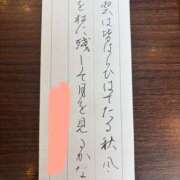 雲は皆はらひはてたる秋風
を松に残して月を見るかな